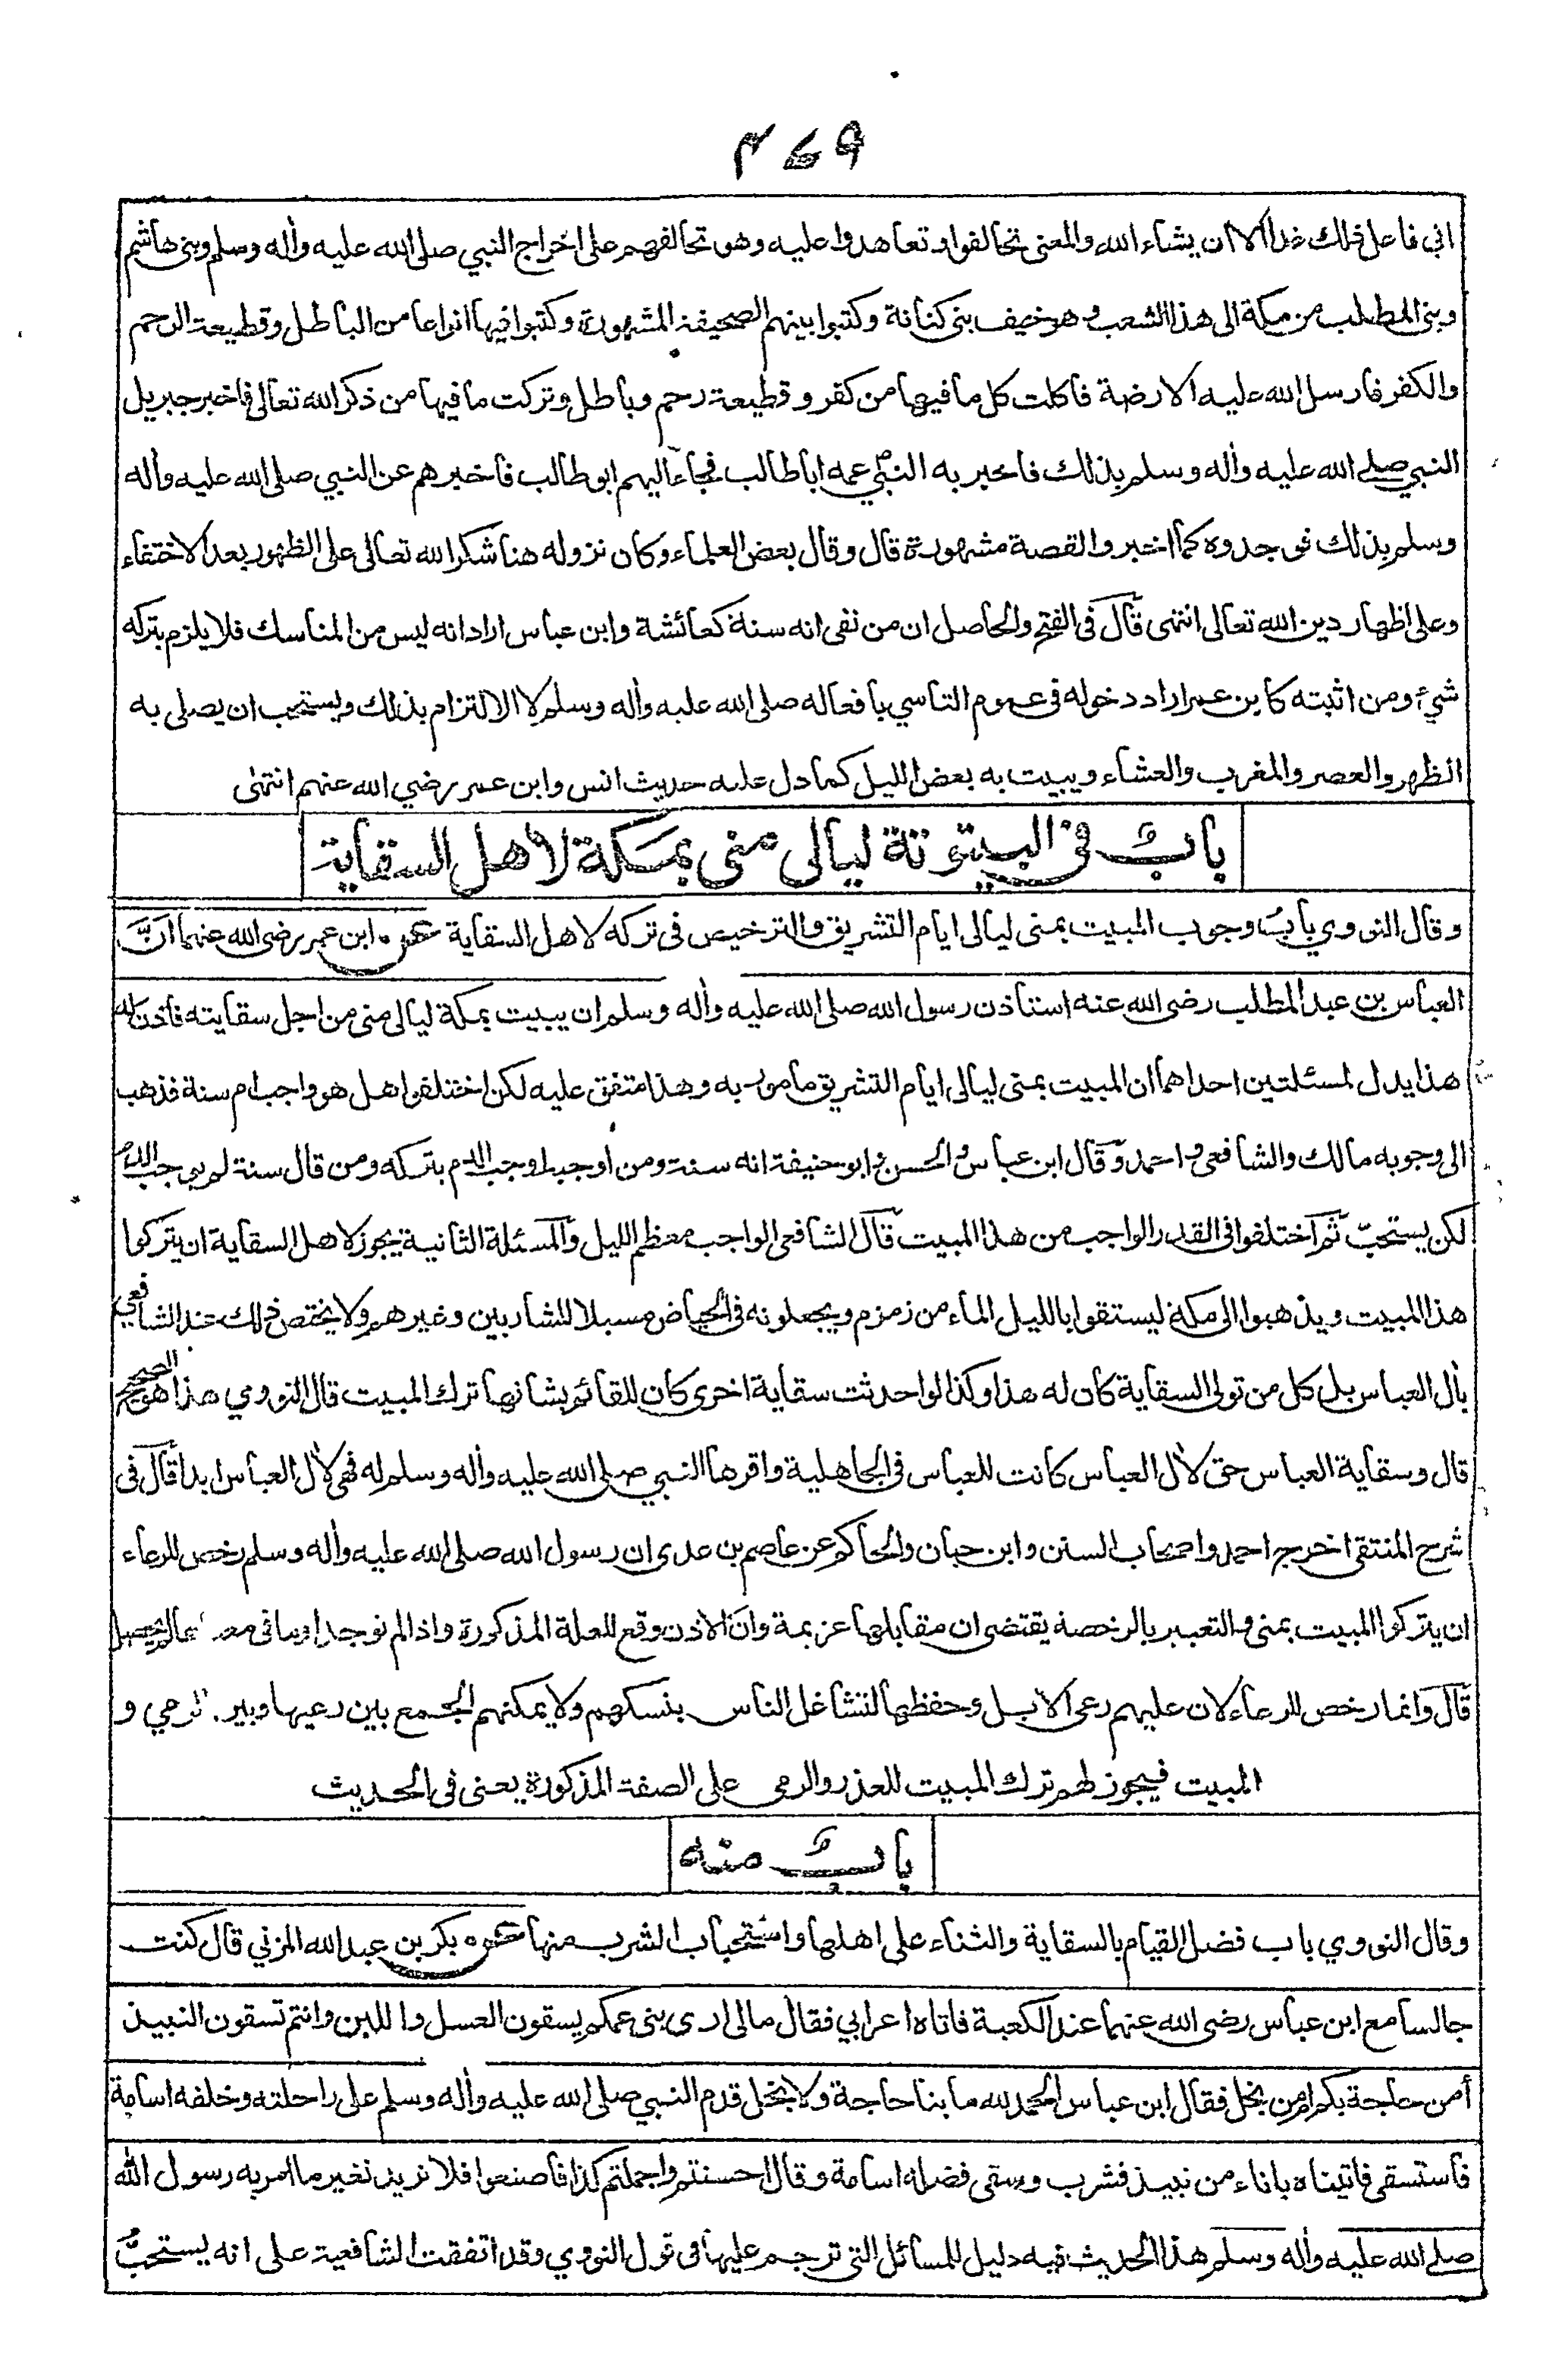 ٤٦٩
اني فاعل ذلك غدا الا ان يشاء الله والمعنى تحالفوا وتعاهدوا عليه وهو تحالفهم على اخراج النبي صلى الله عليه واٰله وسلم وبني هاشم
وبني المطلب من مكة الى هذا الشعب وهو خيف بني كنانة وكتبوا بينهم الصحيفة المشهورة وكتبوا فيها انواعا من الباطل وقطيعة الرحم
والكفر فارسل الله عليه الارضة فاكلت كل ما فيها من كفر وقطيعة رحم وباطل وتركت ما فيها من ذكر الله تعالى فاخبر جبريل
النبي صلى الله عليه واٰله وسلم بذلك فاخبر به النبي عمه ابا طالب فجاء اليهم ابو طالب فاخبرهم عن النبي صلى الله عليه واٰله
وسلم بذلك فوجدوه كما اخبر والقصة مشهورة قال وقال بعض العلماء وكان نزوله هنا شكرا لله تعالى على الظهور بعد الاختفاء
وعلى اظهار دين الله تعالى انتهى قال في الفتح والحاصل ان من نفى انه سنة كعائشة وابن عباس اراد انه ليس من المناسك فلا يلزم بتركه
شيء ومن اثبته كابن عمر اراد دخوله في عموم التاسي بافعاله صلى الله عليه واٰله وسلم لا الالتزام بذلك ويستحب ان يصلى به
الظهر والعصر والمغرب والعشاء ويبيت به بعض الليل كما دل عليه حديث انس وابن عمر رضي الله عنهم انتهى
باب في البيتوتة ليالى منى بمكة لاهل السقاية
وقال النووي باب وجوب المبيت بمنى ليالى ايام التشريق والترخيص في تركه لاهل السقاية عن ابن عمر رضى الله عنهما انَّ
العباس بن عبد المطلب رضى الله عنه استاذن رسول الله صلى الله عليه واٰله وسلم ان يبيت بمكة ليالى منى من اجل سقايته فاذن له
هذا يدل لمسئلتين احداهما ان المبيت بمنى ليالى ايام التشريق مامور به وهذا متفق عليه لكن اختلفوا هل هو واجب ام سنة فذهب
الى وجوبه مالك والشافعى واحمد وقال ابن عباس والحسن وابو حنيفة انه سنة ومن اوجبه اوجب الدم بتركه ومن قال سنة لم يجب الدم
لكن يستحبّ ثم اختلفوا في القدر الواجب من هذا المبيت قال الشافعى الواجب معظم الليل والمسئلة الثانية يجوز لاهل السقاية ان يتركوا
هذا المبيت ويذهبوا الى مكة ليستقوا بالليل الماء من زمزم ويجعلونه في الحياض مسبلا للشاربين وغيرهم ولا يختص ذلك عند الشافعي
باٰل العباس بل كل من تولى السقاية كان له هذا وكذا لو احدثت سقاية اخرى كان للقائم بشانها ترك المبيت قال النووي هذا هو الصحيح
قال وسقاية العباس حق لاٰل العباس كانت للعباس في الجاهلية واقرها النبي صلى الله عليه واٰله وسلم له فهى لاٰل العباس ابدا قال في
شرح المنتقى اخرج احمد واصحاب السنن وابن حبان والحاكم عن عاصم بن عدى ان رسول الله صلى الله عليه واٰله وسلم رخص للرعاء
ان يتركوا المبيت بمنى والتعبير بالرخصة يقتضى ان مقابلها عزيمة وان الاذن وقع للعلة المذكورة واذا لم توجد او ما في لم يحصل
قال وانما رخص للرعاء لان عليهم رعى الابل وحفظها لتشاغل الناس بنسكهم ولا يمكنهم الجمع بين رعيها وبين الرمي و
المبيت فيجوز لهم ترك المبيت للعذر والرمى على الصفة المذكورة يعنى في الحديث
باب منه
وقال النووي باب فضل القيام بالسقاية والثناء على اهلها واستحباب الشرب منها عن بكر بن عبد الله المزني قال كنت
جالسا مع ابن عباس رضى الله عنهما عند الكعبة فاتاه اعرابي فقال مالى ارى بنى عمكم يسقون العسل واللبن وانتم تسقون النبيذ
أمن حاجة بكم ام من بخل فقال ابن عباس الحمد لله ما بنا حاجة ولا بخل قدم النبي صلى الله عليه واٰله وسلم على راحلته وخلفه اسامة
فاستسقى فاتيناه باناء من نبيذ فشرب وسقى فضله اسامة وقال احسنتم واجملتم كذا فاصنعوا فلا نريد نغير ما امر به رسول الله
صلى الله عليه واٰله وسلم هذا الحديث فيه دليل للمسائل التى ترجم عليها في قول النووي وقد اتفقت الشافعية على انه يستحبُّ